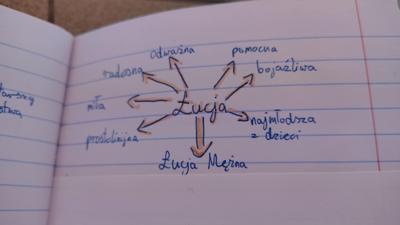 odważna
pomocna
radosna
bojaźliwa
miła
Łucja
prostolinijna
najmłodsza
z dzieci
Łucja Mężna